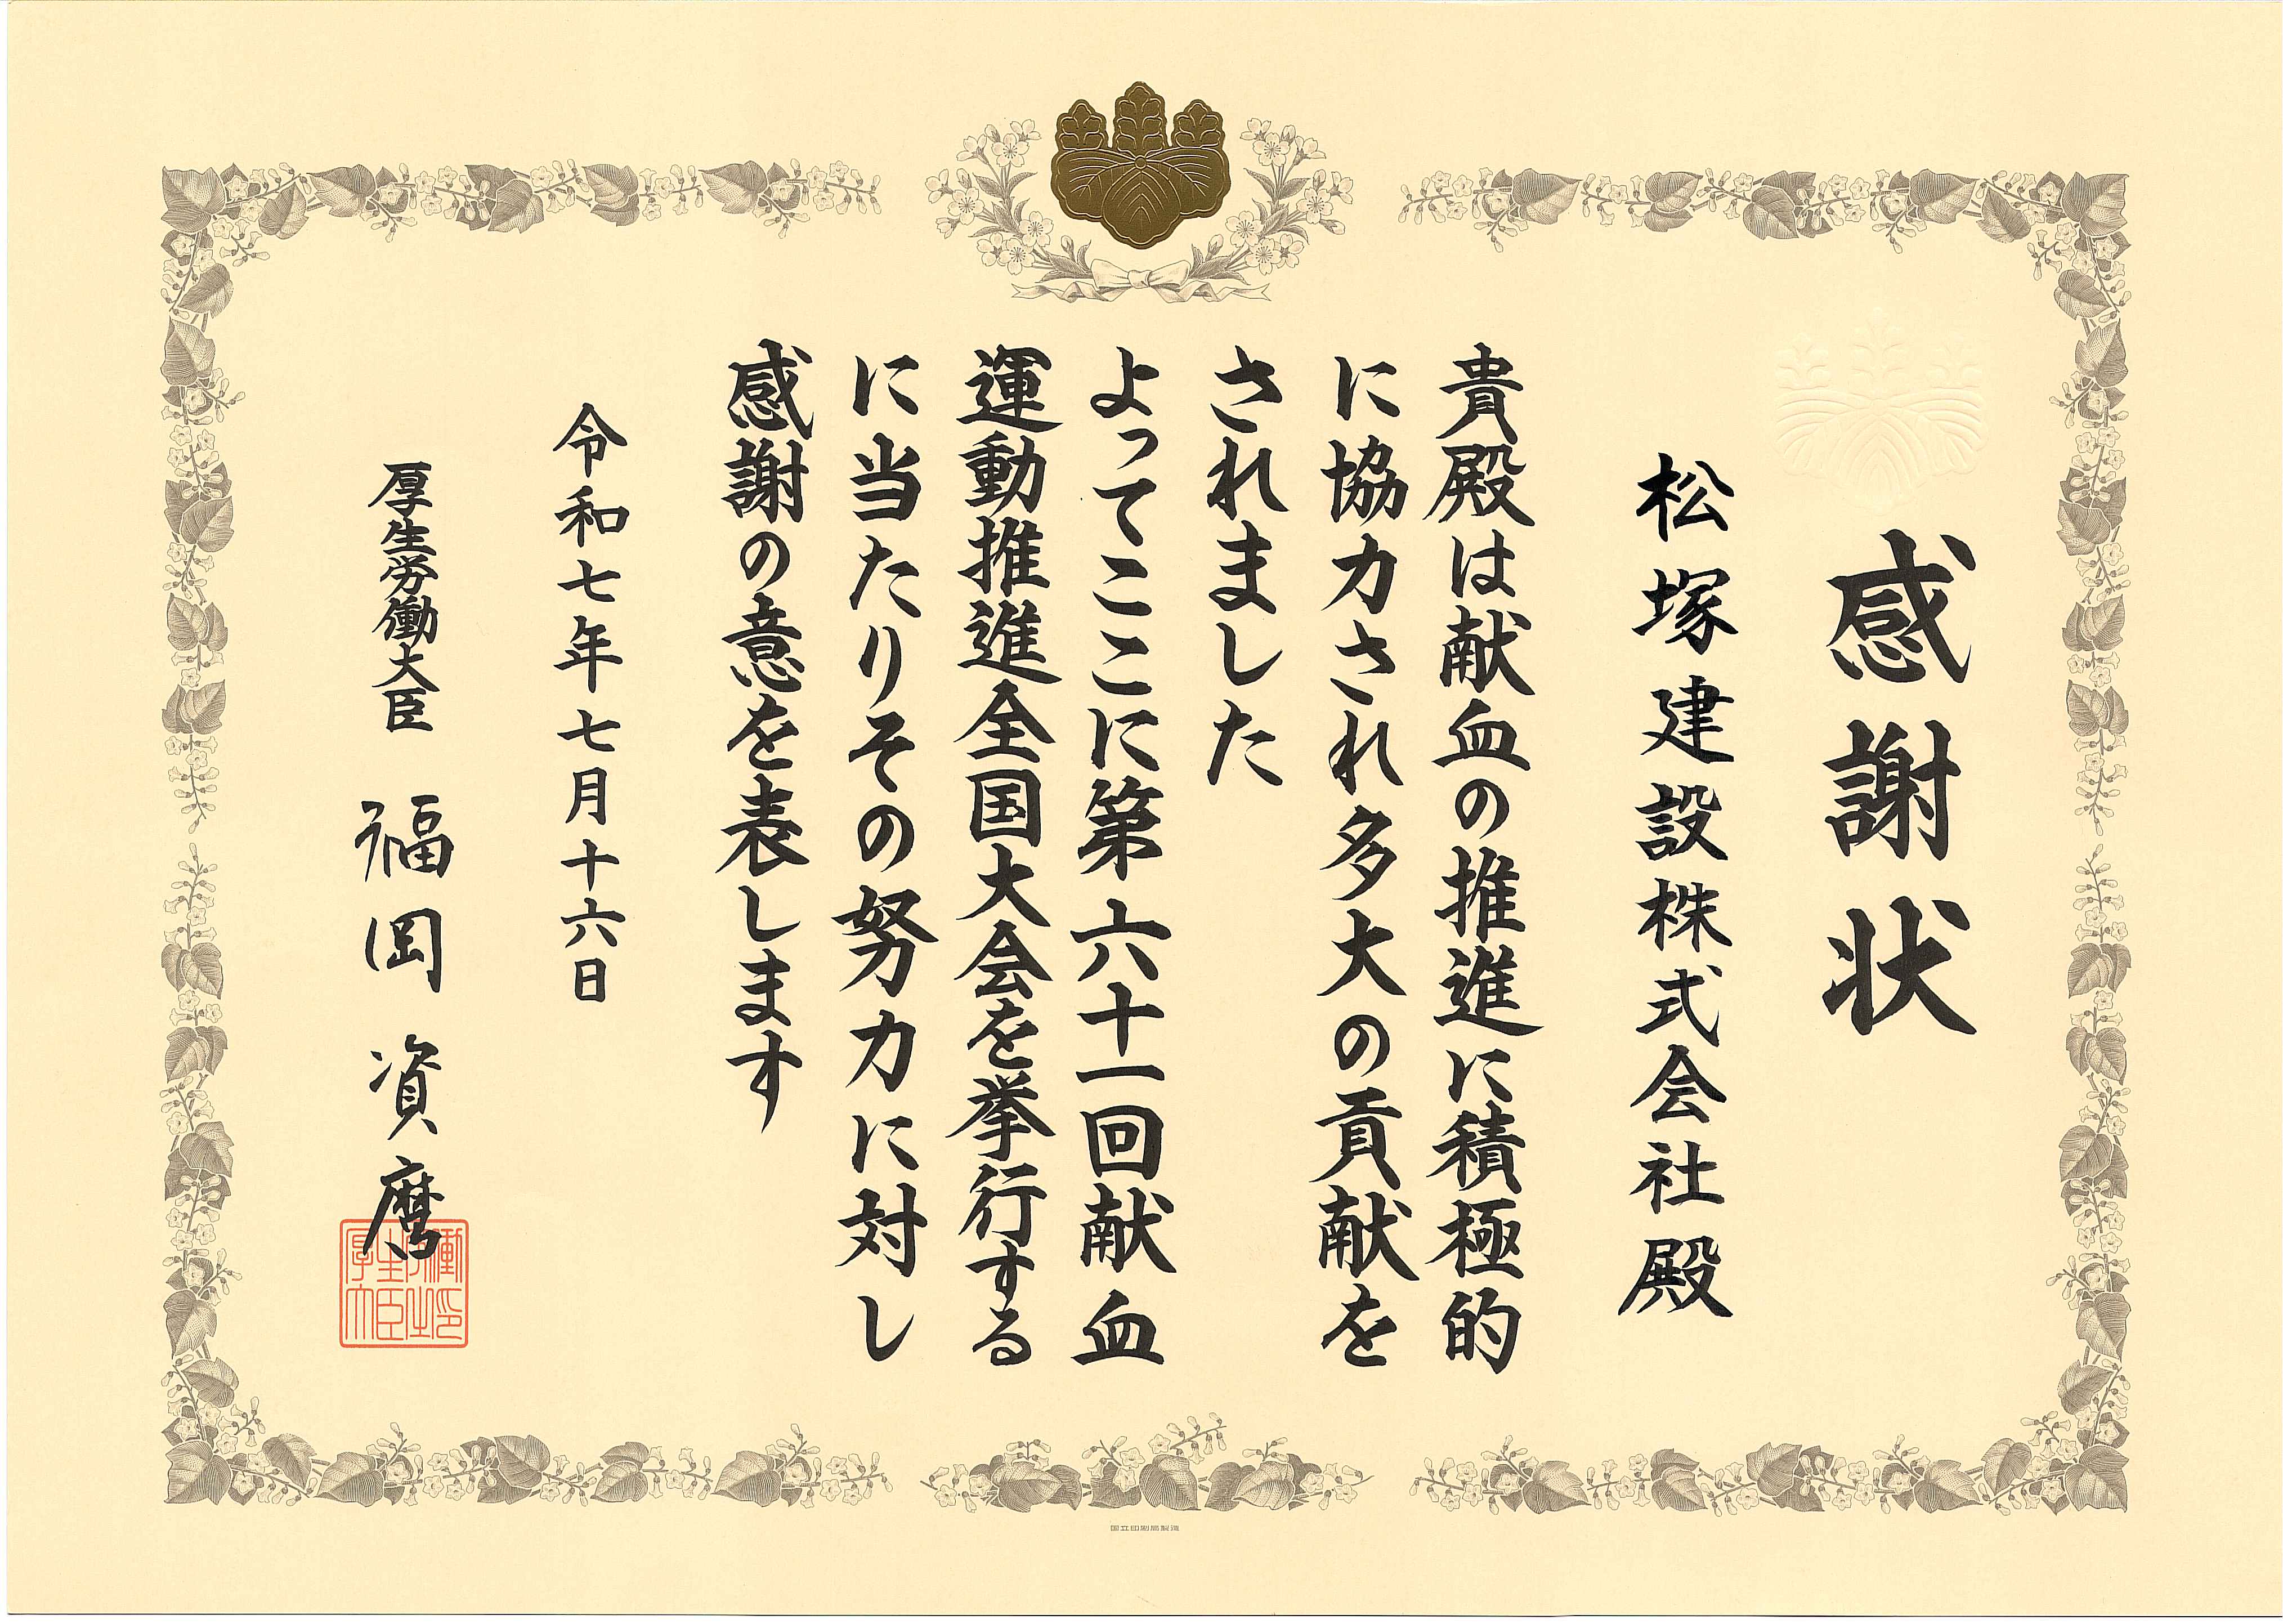 感謝状
松塚建設株式会社殿
貴殿は献血の推進に積極的
に協力され多大の貢献を
されました
よってここに第六十一回献血
運動推進全国大会を挙行する
に当たりその努力に対し
感謝の意を表します
令和七年七月十六日
厚生労働大臣 福岡資麿
国立印刷局製造